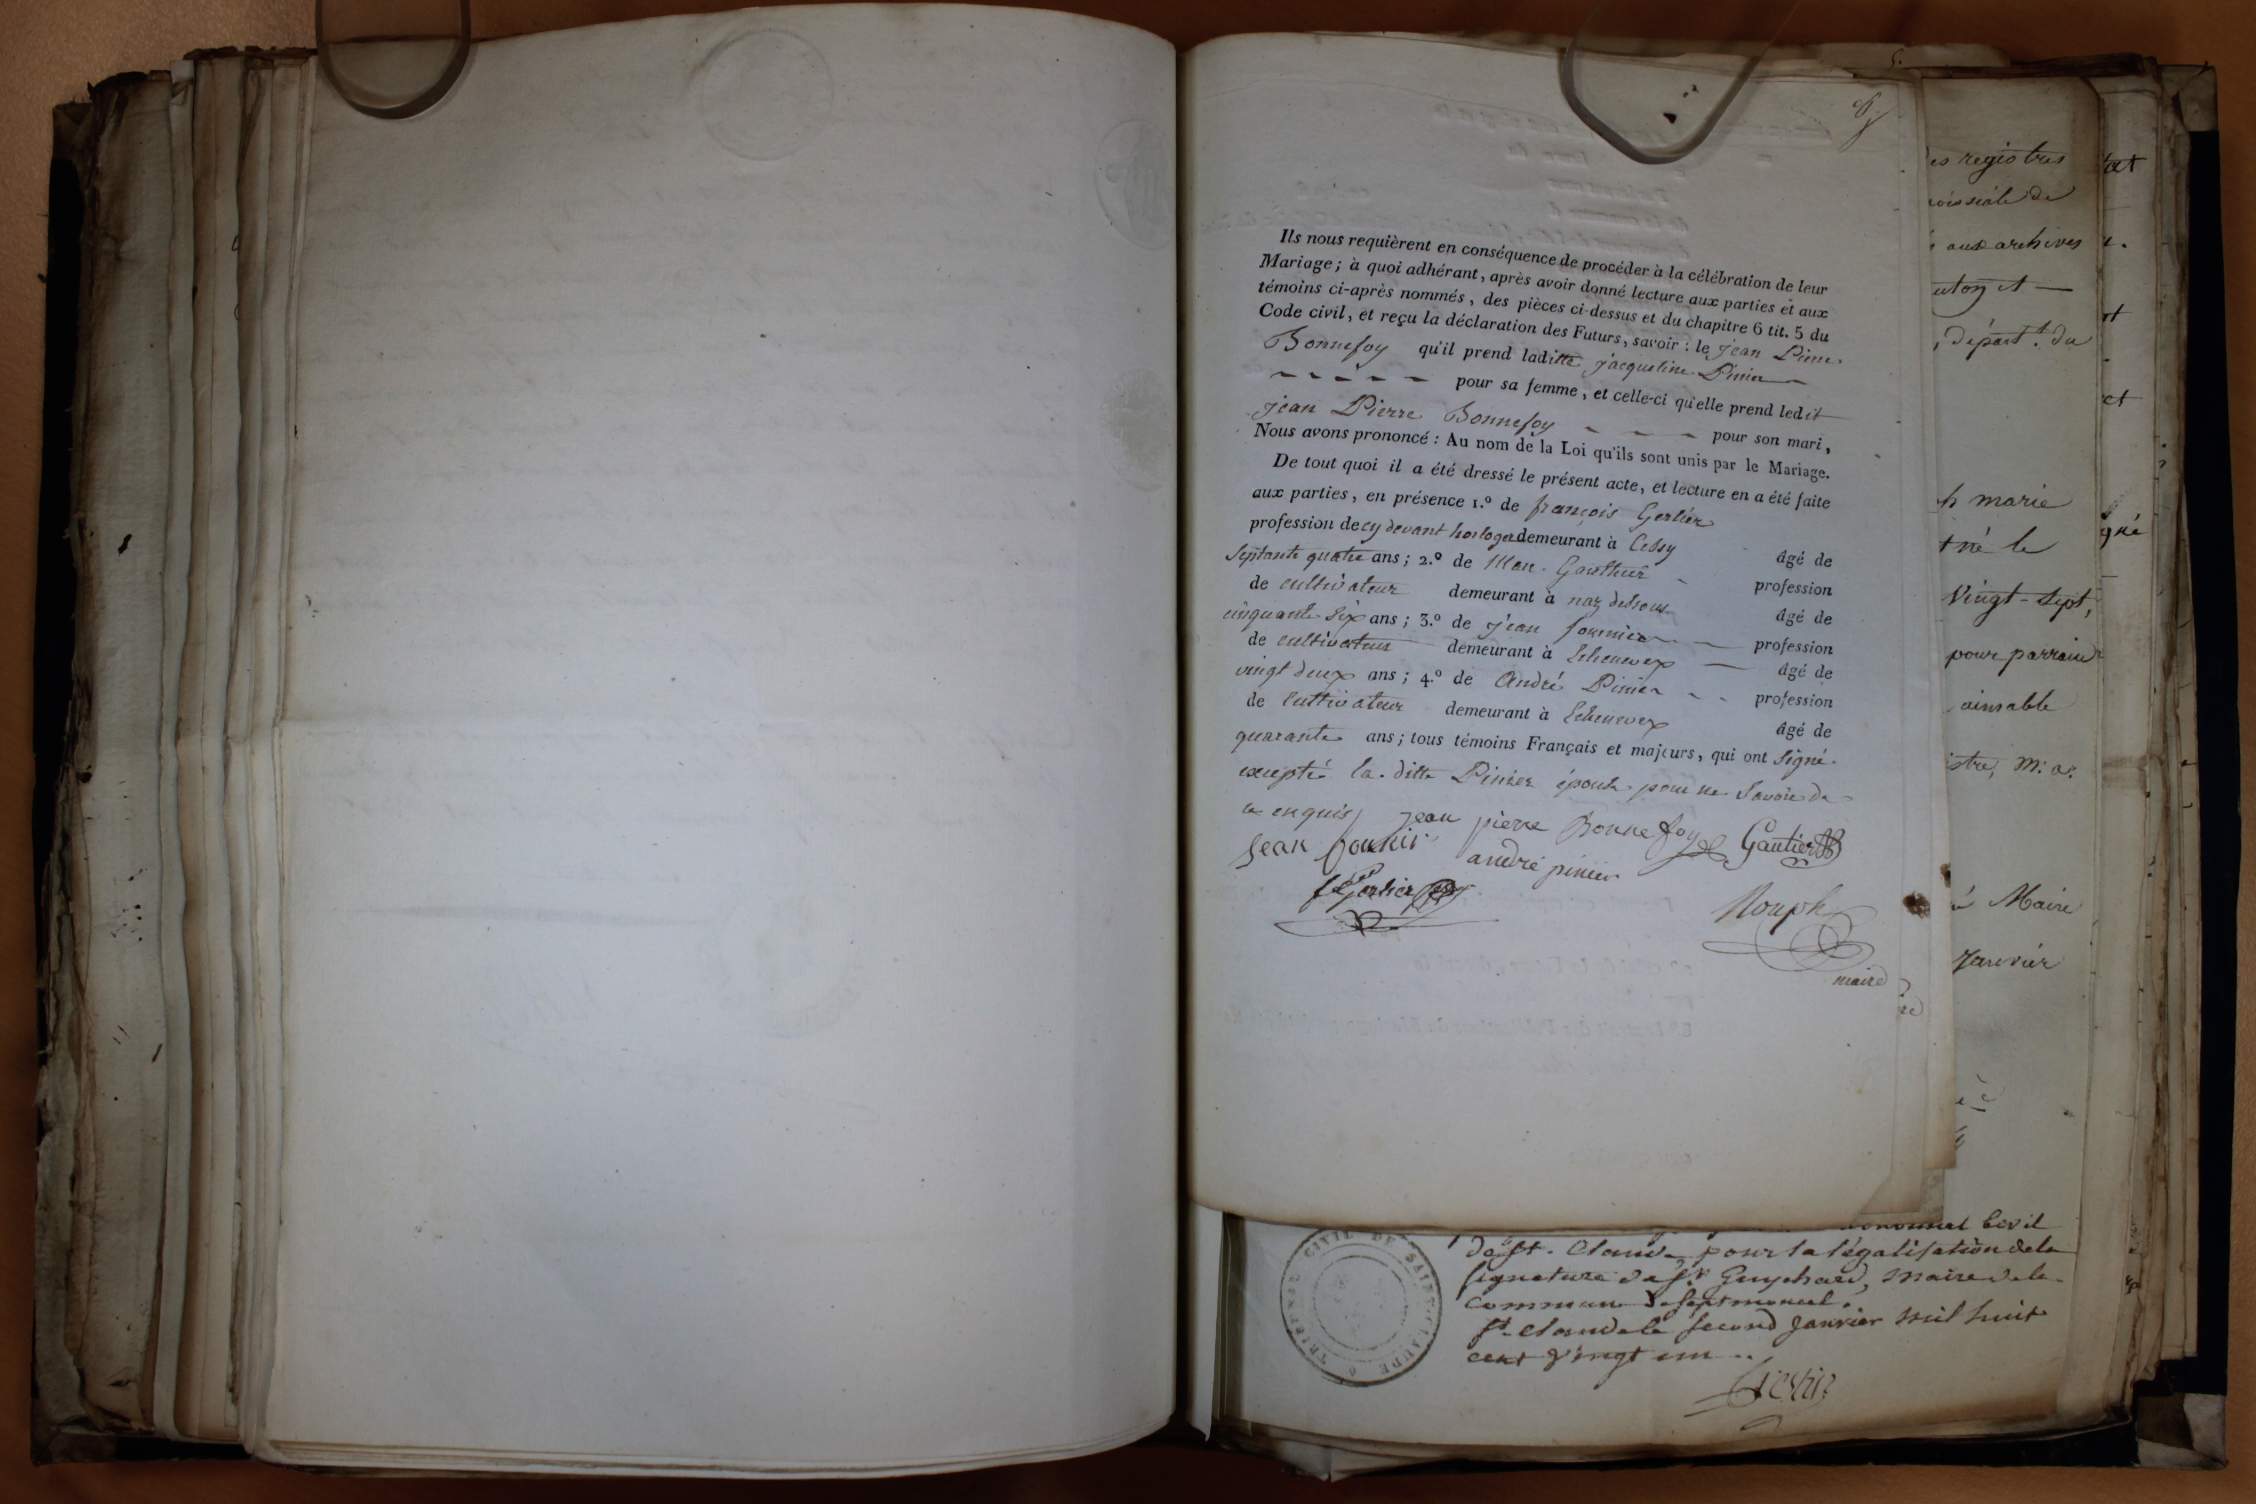 Ils nous requièrent en conséquence de procéder à la célébration de leur
Mariage; à quoi adhérant, après avoir donné lecture aux parties et aux
témoins ci-après nommés, des pièces ci-dessus et du chapitre 6 tit. 5 du
Code civil, et reçu la déclaration des Futurs, savoir : le Jean Pierre
Bonnefoy qu'il prend laditte jacqueline Pinier
pour sa femme, et celle-ci qu'elle prend ledit
jean Pierre Bonnefoy pour son mari,
Nous avons prononcé : Au nom de la Loi qu'ils sont unis par le Mariage.
De tout quoi il a été dressé le présent acte, et lecture en a été faite
aux parties, en présence 1.º de françois Gerlier
profession de cy devant horloger demeurant à Cessy âgé de
septante quatre ans; 2.º de Gauthier profession
de cultivateur demeurant à naz dessous âgé de
cinquante six ans; 3.º de jean fournier profession
de cultivateur demeurant à Echenevex âgé de
vingt deux ans; 4.º de André Pinier profession
de Cultivateur demeurant à Echenevex âgé de
quarante ans; tous témoins Français et majeurs, qui ont signé.
excepté la ditte Pinier épouse pour ne savoir de
ce enquis jean pierre Bonnefoy Gautier
Jean fournier andré pinier
f Gerlier Rouph
maire
es registres
oissiale de
aux archives
et
, départ.t du
marie
né le
Vingt-sept,
pour parrain
ainsable
istre, M. a.
Maire
Janvier
Civil
de St. Claude pour la légalisation de la
signature de Sr. Guychard, maire de la
commune de septmoncel.
St. Claude le second Janvier mil huit
cent vingt un
TRIBUNAL CIVIL DE SAINT-CLAUDE